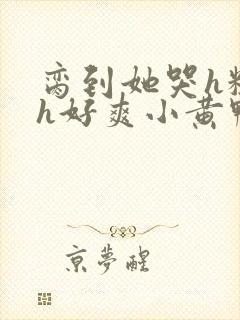 脔到她哭h
h好爽小黄
京夢醒